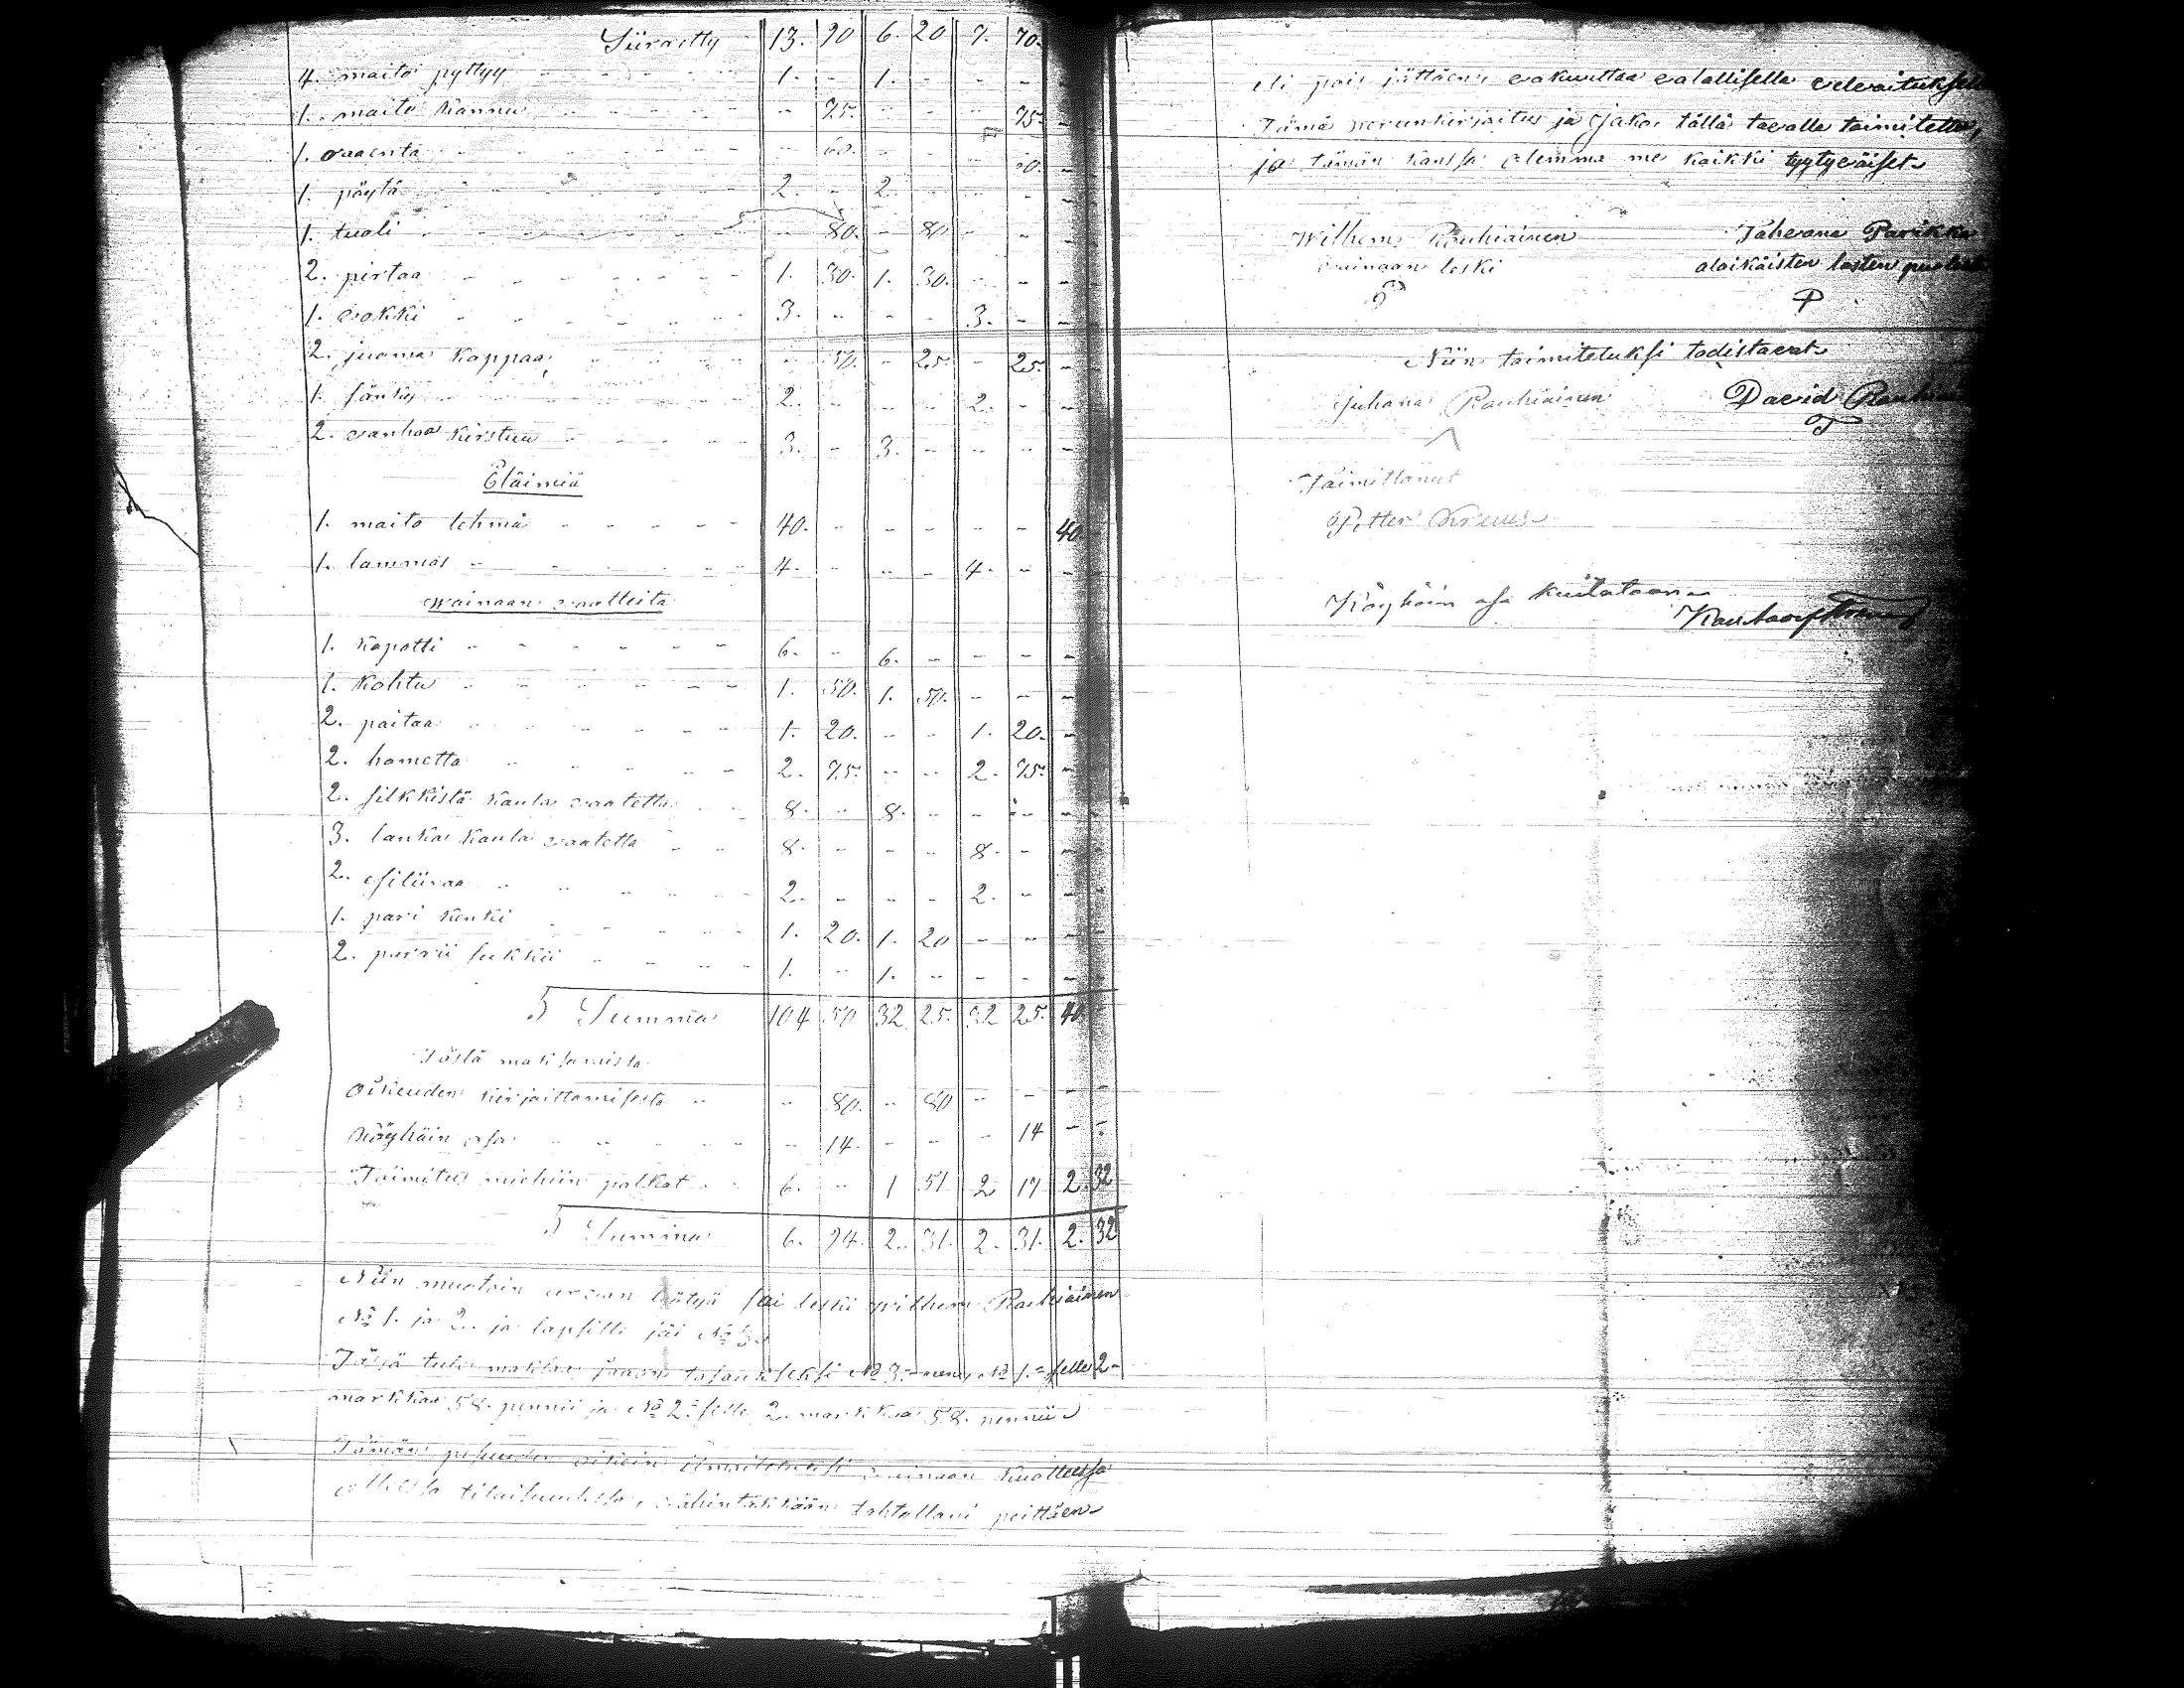 Siirretty 13. 90 6. 20 7. 70.
4. maito pyttyy - 1. - 1. - - -
1. maito kannu - - 75. - - - 75. -
1. - - 60. - - - 60. -
1. pöytä - 2 - 2. - - - -
1. tuoli - - 80. - 80 - - -
2. pirtaa - 1. 30. 1. 30. - - -
1. vokki - 3. - - - 3. - -
2. juoma kappaa, - - 50. - 25. - 25. -
1. sänky - 2. - - - 2. - -
2. vanhaa kirstuu - 3. - 3. - - - -
Eläimiä
1. maito lehmä - 40. - - - - - 40.
1. lammas - 4. - - - 4. - -
wainaan vaatteita
1. kapotti - 6. - 6. - - - -
1. kohtu - 1. 50. 1. 50. - - -
2. paitaa - 1. 20. - - 1. 20. -
2. hametta - 2. 75. - - 2. 75. -
2. silkkistä kaula vaatetta - 8. - 8. - - - -
3. lanka kaula vaatetta - 8. - - - 8. - -
2. esiliinaa - 2. - - - 2. - -
1. pari kenkii - 1. 20. 1. 20 - - -
2. parrii sukkii - 1. - 1. - - - -
Summa 104 50 32 25. 32 25. 40.
Tästä maksamista
Oikeuden kirjaittamisesta - - 80. - 80 - - -
Köyhäin osa - - 14. - - - 14 - -
Toimitus miehiin palkat - 6. - 1 51 2 17 2. 32
Summa 6. 94. 2. 31. 2. 31. 2. 32
Niin muotoin arvan lyötyä sai leski Wilhem Rauhiainen
No 1. ja 2. ja lapsille jäi No 3.
Tässä tulee maksaa jaaon tasaukseksi No 3.-nen, No 1.-selle 2-
markkaa 58. pennii ja No 2.-selle 2. markkaa 58. pennii
Tämän pesuuden oikein ilmoitetuksi wainaan kuolleessa
olleessa tilaisuudessa, vähintäkkään tahtollani peittäen
eli pois jättäen, vakuuttaa valallisella velvoituksella
Tämä perunkirjoitus ja Jako, tällä tavalla toimitettu,
ja tämän kanssa olemma me kaikki tyytyväiset
Wilhem Rouhiainen Tahvana Parikka
wainaan leski alaikäisten lasten puolesta
Niin toimitetuksi todistavat
Juhana Rouhiainen David Rouhiai
Toimittanut
Petter
Köyhäin osa kuitataan